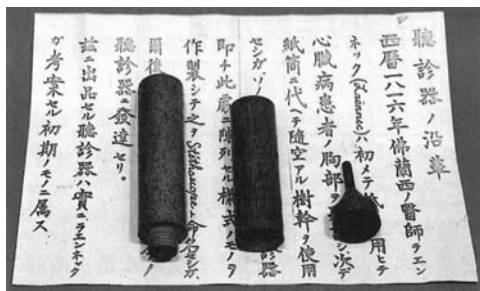 聽診器ノ沿革
西暦一八一六年佛蘭西ノ醫師ラエン
ネック(Laënnec)ハ初メテ紙 用ヒテ
心臓病患者ノ胸部ヲ シ次デ
紙筒ニ代ヘテ隨空アル樹幹ヲ使用
セシガ 診器
即チ此處ニ陳列セル樣式ノモノヲ
作製シテ之ヲStéthoscopeト命名セシガ
爾後 ノ
聽診器ニ發達セリ。
茲ニ出品セル聽診器ハ實ニラエンネック
ガ考案セル初期ノモノニ属ス